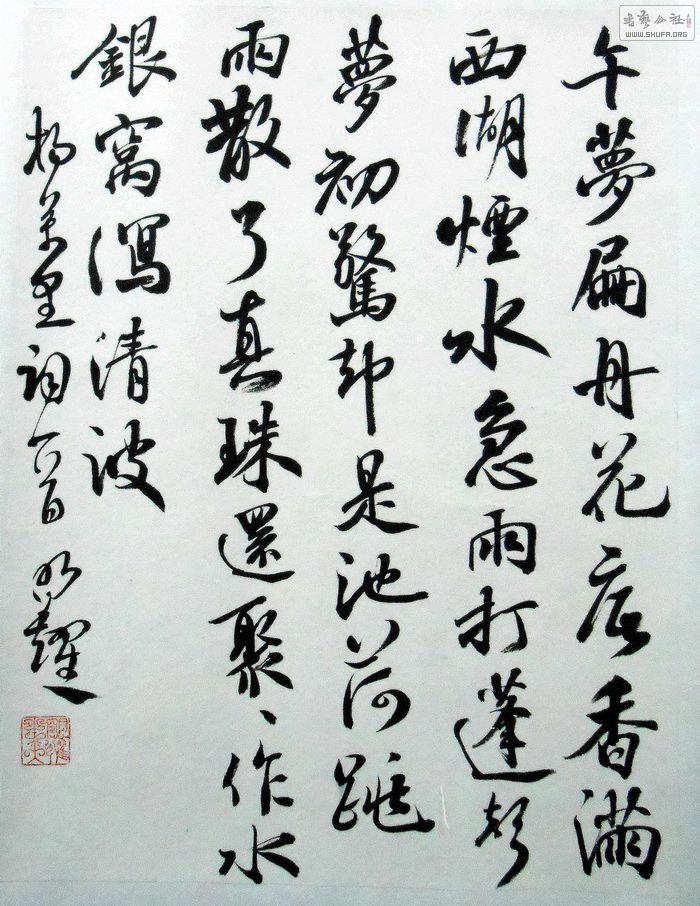 午夢扁舟花底香滿
西湖煙水急雨打蓬聲
夢初驚却是池荷跳
雨散了真珠還聚、作水
銀窩瀉清波
楊萬里詞一首
書藝公社
WWW.SHUFA.ORG